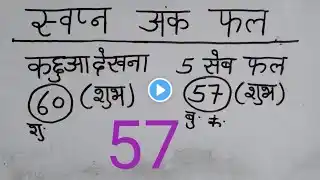 स्वप्न अंक फल
कछुआ देखना 5 सेब फल
60 (शुभ) 57 (शुभ)
शु. बु. के.
57